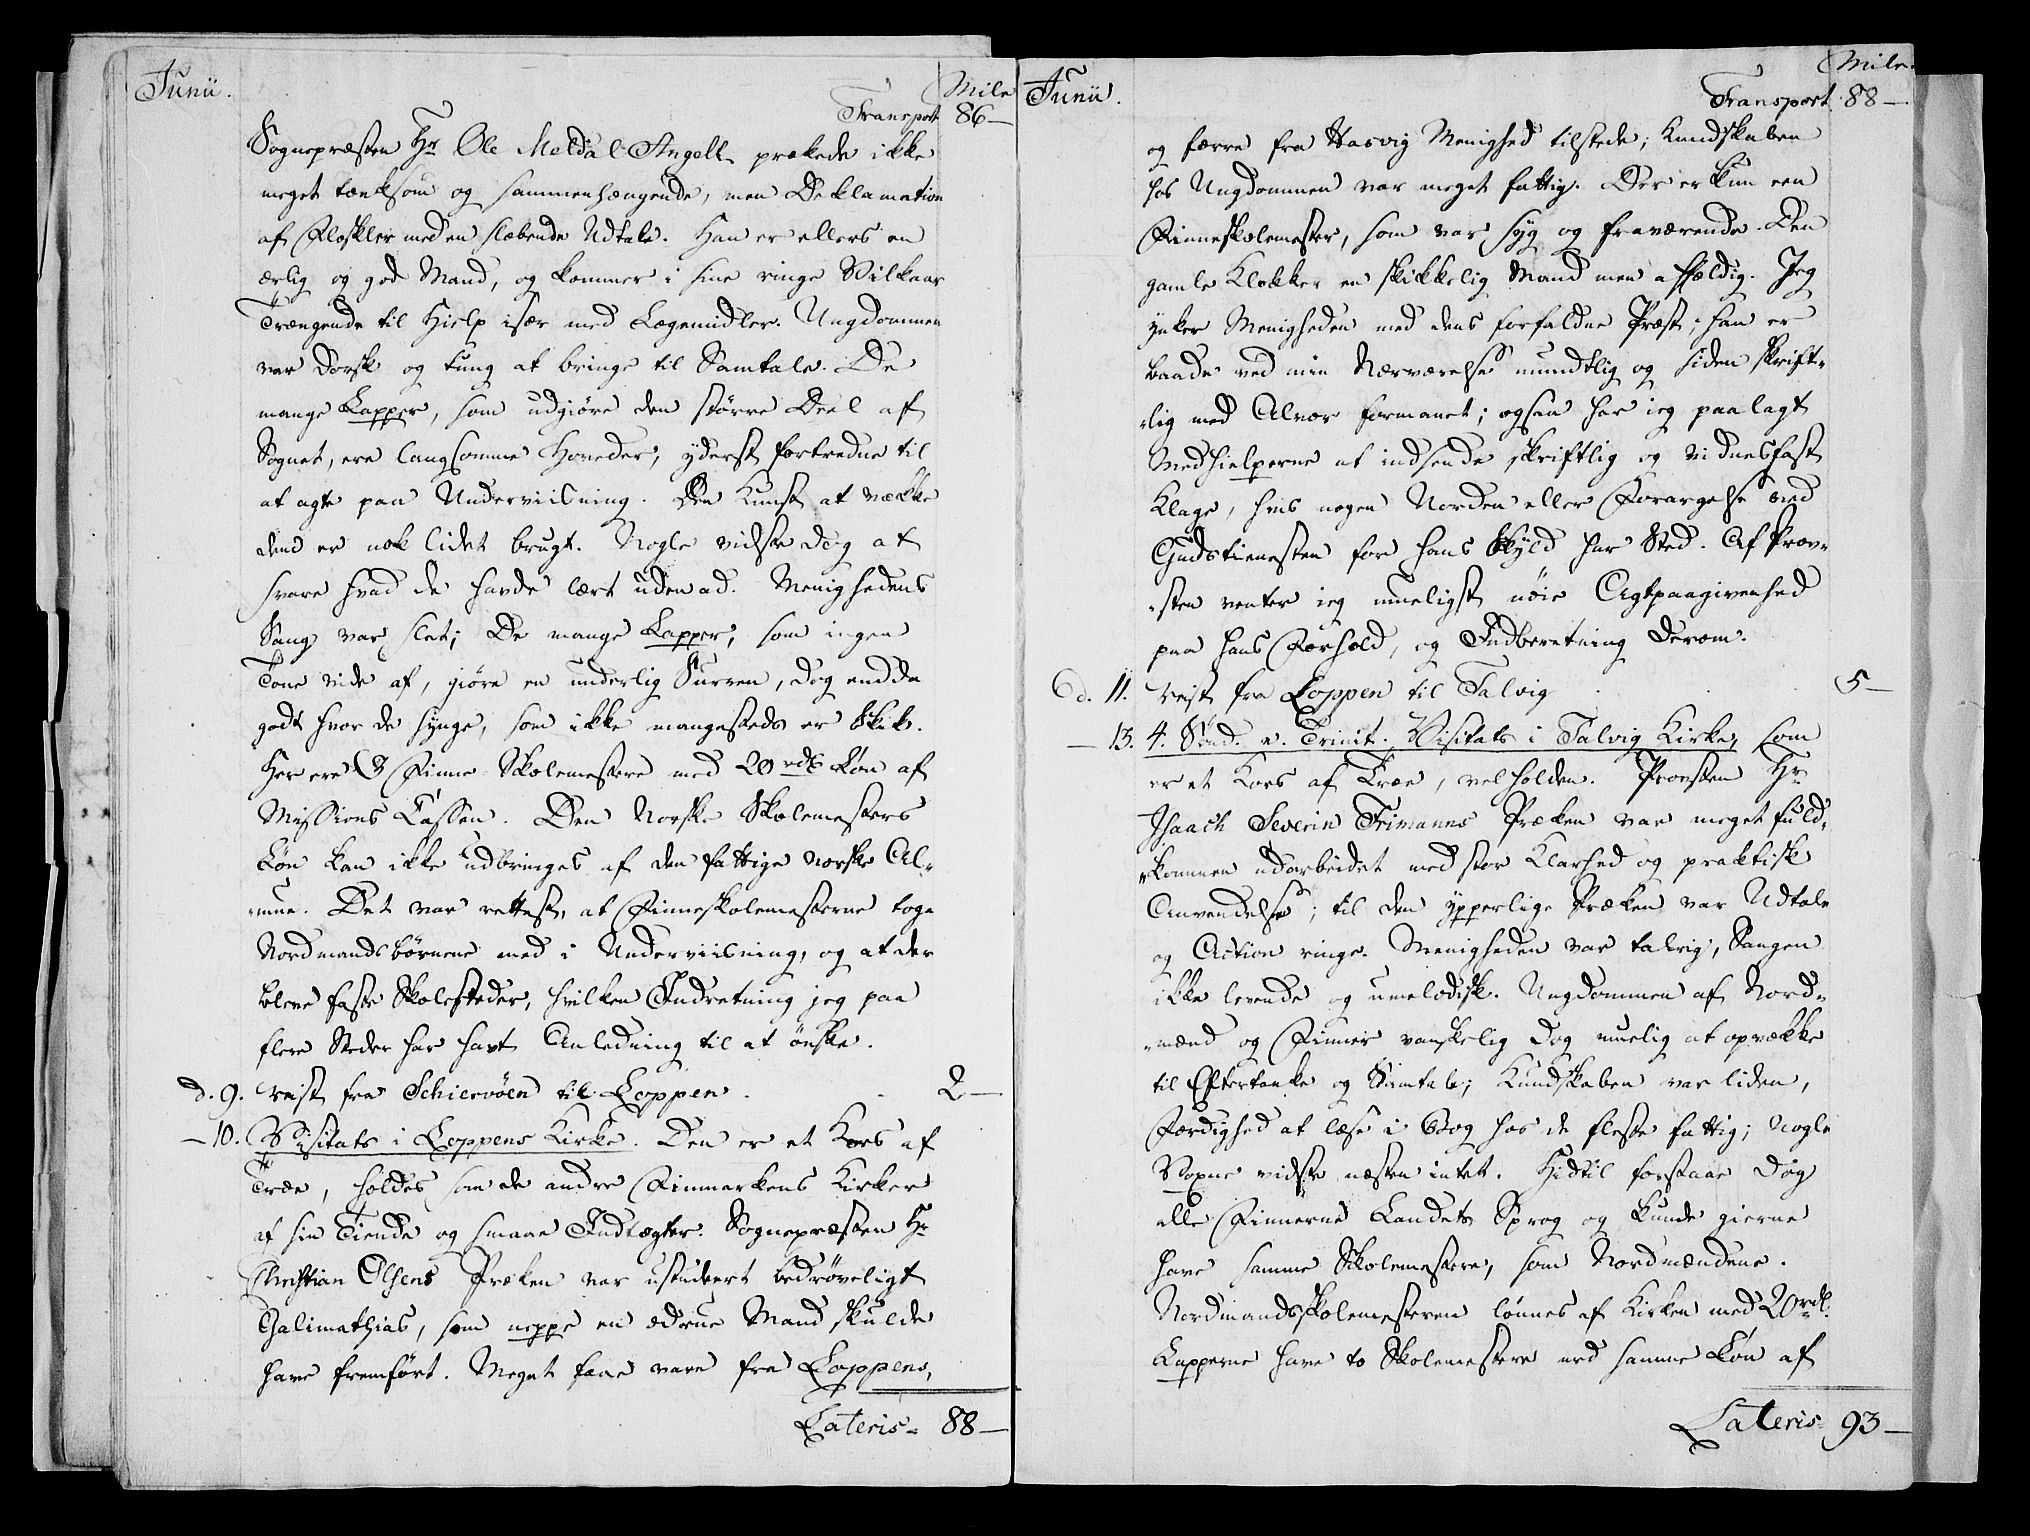 Junii.
Mile
Transport 86 —
Sognepræsten Hr Ole Meldal Angell prækede ikke
meget tænksom og sammenhængende, men Deklamation
af Floskler med en slæbende Udtale. Han er ellers en
ærlig og god Mand, og kommer i sine ringe Vilkaar
Trængende til Hielp især med Lægemidler. Ungdommen
var dorsk og tung at bringe til Samtale. De
mange Lapper, som udgiøre den større Deel af
Sognet, ere langsomme Hoveder, yderst fortredne til
at agte paa Underviisning. Den Kunst at vække
dem er nok lidet brugt. Nogle vidste dog at
svare hvad de havde lært uden ad. Menighedens
Sang var slet; De mange Lapper, som ingen
Tone vide af, giøre en underlig Surren, dog endda
godt hvor de synge, som ikke mangesteds er Skik.
Her ere 3 Finne Skolemestere med 20 rdl Løn af
Missions Cassen. Den Norske Skolemesters
Løn kan ikke udbringes af den fattige norske Al-
-mue. Det var rettest, at Finneskolemesterne toge
Nordmandsbørnene med i Underviisning, og at der
bleve faste Skolesteder, hvilken Indretning jeg paa
flere Steder har havt Anledning til at ønske.
d. 9. reist fra Schiervöen til Loppen. 2 —
— 10. Visitats i Loppens Kirke. Den er et Kors af
Træe, holdes som de andre Finmarkens Kirker
af sin Tiende og smaae Indtægter. Sognepræsten Hr
Christian Olsens Præken var ustuderet bedrøveligt
Galimathias, som neppe en ædrue Mand skulde
have fremført. Meget faae vare fra Loppens,
Lateris - 88 —
Junii.
Mile.
Transport 88 —
og færre fra Hasvig Menighed tilstede; Kundskaben
hos Ungdommen var meget fattig. Der er kun een
Finneskolemester, som var syg og fraværende. Den
gamle Klokker en skikkelig Mand men affældig. Jeg
ynker Menigheden med dens forfaldne Præst; han er
baade ved min Nærværelse mundtlig og siden skrift-
-lig med Alvor formanet; ogsaa har ieg paalagt
Medhielperne at indsende skriftlig og vidnesfast
Klage, hvis nogen Uorden eller Forargelse ved
Gudstienesten for hans Skyld har Sted. Af Prov-
-sten venter ieg mueligst nøie Agtpaagivenhed
paa hans Forhold, og Indberetning derom.
d. 11. reist fra Loppen til Talvig 5 —
— 13. 4. Sønd. e. Trinit. Visitats i Talvig Kirke, som
er et Kors af Træe, velholden. Provsten Hr
Isaach Severin Frimanns Præken var meget fuld-
-kommen udarbeidet med stor Klarhed og praktisk
Anvendelse; til den ypperlige Præken var Udtale
og Action ringe. Menigheden var talrig, Sangen
ikke levende og umelodisk. Ungdommen af Nord-
-mænd og Finner vanskelig dog muelig at opvække
til Eftertanke og Samtale; Kundskaben var liden,
Færdighed at læse i Bog hos de fleste fattig; Nogle
Voxne vidste næsten intet. Hidtil forstaae dog
alle Finnerne Landets Sprog og kunde gierne
have samme Skolemestere, som Nordmændene.
Nordmandsskolemesteren lønnes af Kirken med 20 rdl.
Lapperne have to Skolemestere med samme Løn af
Lateris 93 —